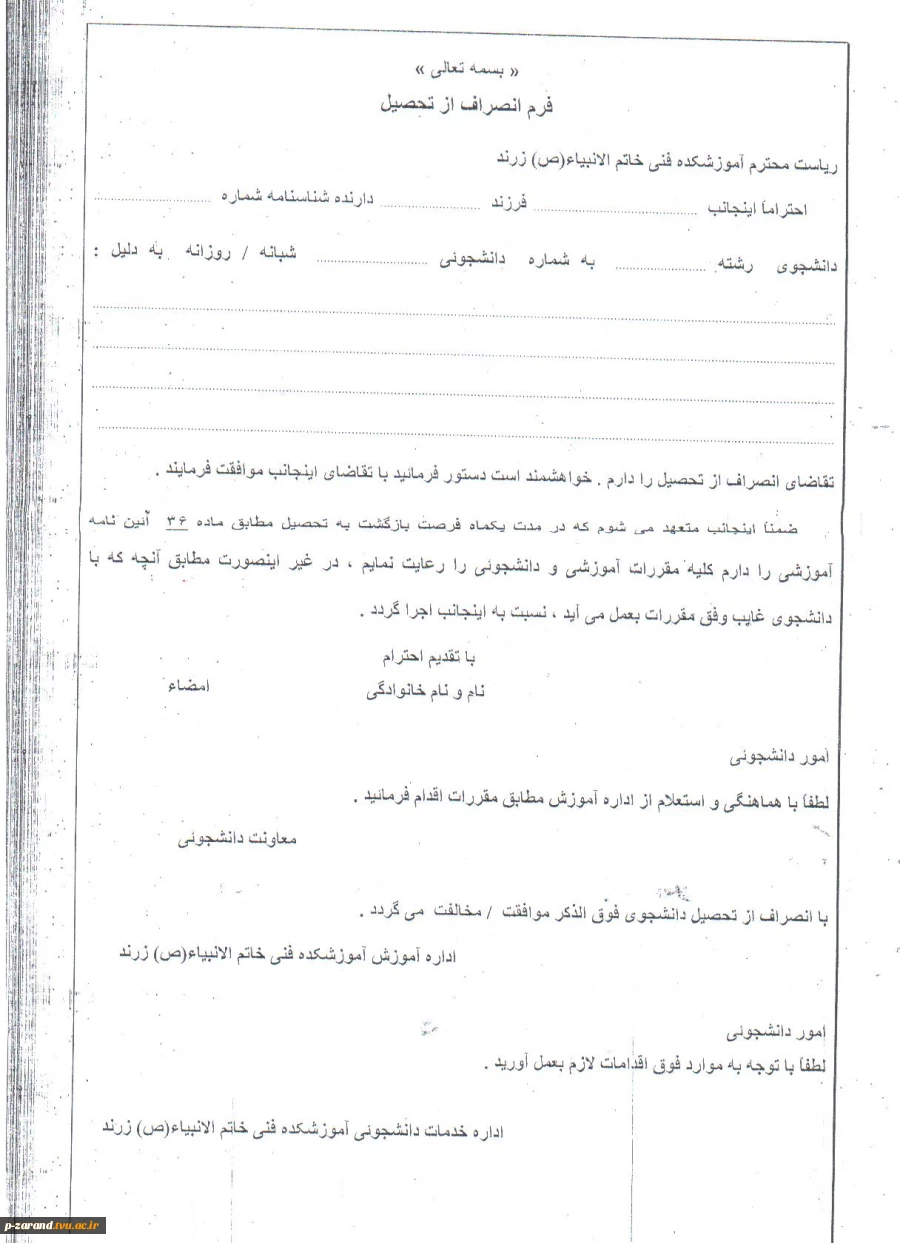 « بسمه تعالی »
فرم انصراف از تحصیل
ریاست محترم آموزشکده فنی خاتم الانبیاء(ص) زرند
احتراماً اینجانب ........................ فرزند ........................ دارنده شناسنامه شماره ........................
دانشجوی رشته ........................ به شماره دانشجوئی ........................ شبانه / روزانه به دلیل :
تقاضای انصراف از تحصیل را دارم . خواهشمند است دستور فرمائید با تقاضای اینجانب موافقت فرمایند .
ضمناً اینجانب متعهد می شوم که در مدت یکماه فرصت بازگشت به تحصیل مطابق ماده ۳۶ آئین نامه
آموزشی را دارم کلیه مقررات آموزشی و دانشجوئی را رعایت نمایم ، در غیر اینصورت مطابق آنچه که با
دانشجوی غایب وفق مقررات بعمل می آید ، نسبت به اینجانب اجرا گردد .
با تقدیم احترام
نام و نام خانوادگی امضاء
امور دانشجوئی
لطفاً با هماهنگی و استعلام از اداره آموزش مطابق مقررات اقدام فرمائید .
معاونت دانشجوئی
با انصراف از تحصیل دانشجوی فوق الذکر موافقت / مخالفت می گردد .
اداره آموزش آموزشکده فنی خاتم الانبیاء(ص) زرند
امور دانشجوئی
لطفاً با توجه به موارد فوق اقدامات لازم بعمل آورید .
اداره خدمات دانشجوئی آموزشکده فنی خاتم الانبیاء(ص) زرند
p-zarand.tvu.ac.ir